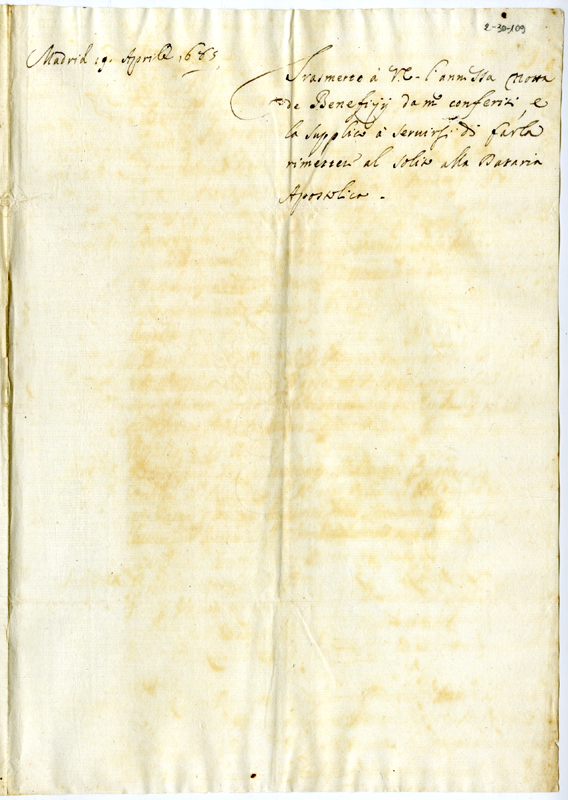 2-30-109
Madrid 19. Aprile 1685
Trasmetto à VE - l'annessa Notta
de Benefizij da me conferiti, e
la supplico à servirsi di farla
rimettere al solito alla Dataria
Apostolica -